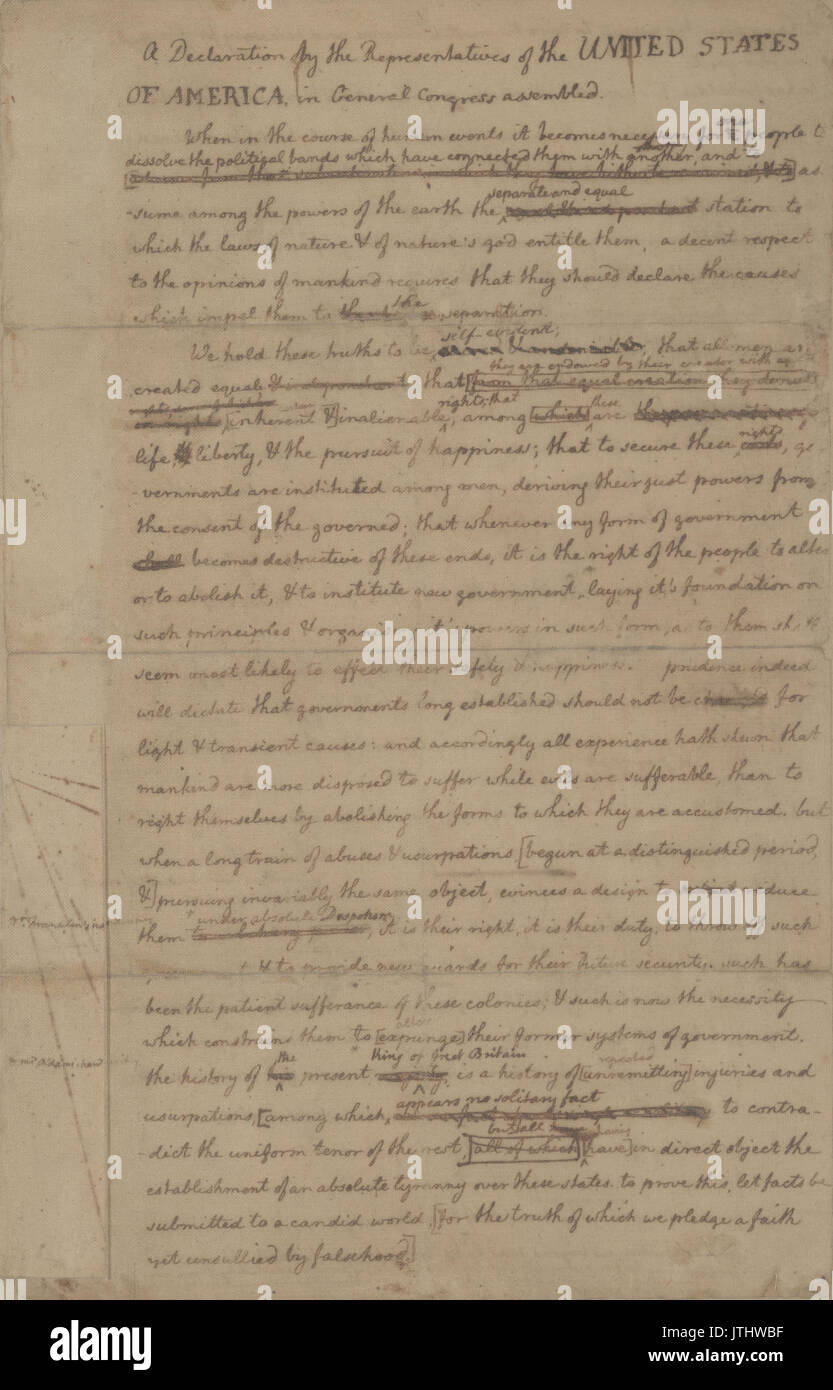 A Declaration by the Representatives of the UNITED STATES
OF AMERICA, in General Congress assembled.
When in the course of human events it becomes necessary for one people to
dissolve the political bands which have connected them with another, and to
as-
separate and equal
-sume among the powers of the earth the station to
which the laws of nature & of nature's god entitle them, a decent respect
to the opinions of mankind requires that they should declare the causes
which impel them to the separation.
self evident;
We hold these truths to be that all men are
they are endowed by their creator with
created equal & independant that [from that equal creation they derive
rights; that these
[inherent &] inalienable, among [which] are
life, & liberty, & the pursuit of happiness; that to secure these rights, go
-vernments are instituted among men, deriving their just powers from
the consent of the governed; that whenever any form of government
shall becomes destructive of these ends, it is the right of the people to alter
or to abolish it, & to institute new government, laying it's foundation on
such principles & organising it's powers in such form, as to them shall
seem most likely to effect their safety & happiness. prudence indeed
will dictate that governments long established should not be changed for
light & transient causes: and accordingly all experience hath shewn that
mankind are more disposed to suffer while evils are sufferable, than to
right themselves by abolishing the forms to which they are accustomed. but
when a long train of abuses & usurpations, [begun at a distinguished period,
&] pursuing invariably the same object, evinces a design to reduce
under absolute Despotism
them it is their right, it is their duty, to throw off such
& to provide new guards for their future security. such has
been the patient sufferance of these colonies; & such is now the necessity
alter
which constrains them to [expunge] their former systems of government.
the King of Great Britain repeated
the history of his present is a history of [unremitting] injuries and
appears no solitary fact
usurpations, [among which, to contra-
but all having
-dict the uniform tenor of the rest, [all of which] [have] in direct object the
establishment of an absolute tyranny over these states. to prove this, let facts be
submitted to a candid world, [for the truth of which we pledge a faith
yet unsullied by falsehood.]
alamy
a
alamy stock photo
JTHWBF
www.alamy.com